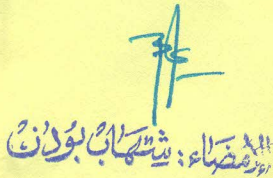 الإمضاء: شتهاب بودن